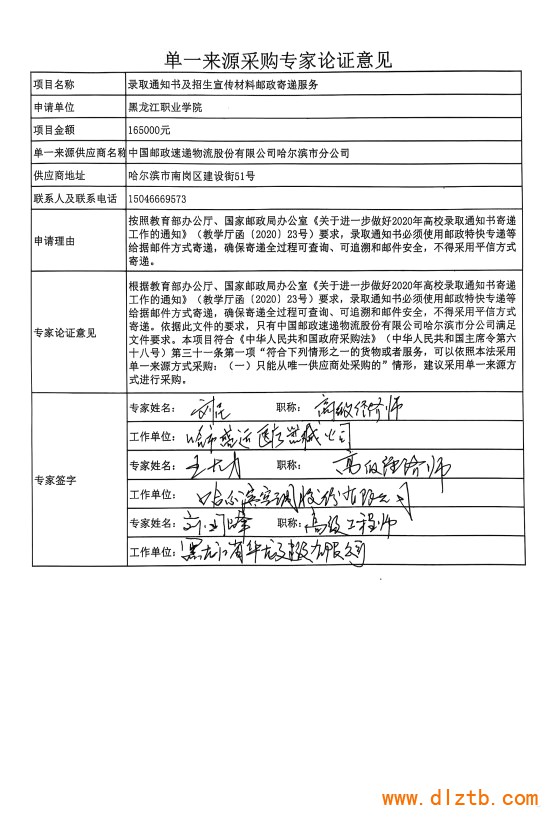 单一来源采购专家论证意见
项目名称 录取通知书及招生宣传材料邮政寄递服务
申请单位 黑龙江职业学院
项目金额 165000元
单一来源供应商名称 中国邮政速递物流股份有限公司哈尔滨市分公司
供应商地址 哈尔滨市南岗区建设街51号
联系人及联系电话 15046669573
申请理由
按照教育部办公厅、国家邮政局办公室《关于进一步做好2020年高校录取通知书寄递
工作的通知》（教学厅函〔2020〕23号）要求，录取通知书必须使用邮政特快专递等
给据邮件方式寄递，确保寄递全过程可查询、可追溯和邮件安全，不得采用平信方式
寄递。
专家论证意见
根据教育部办公厅、国家邮政局办公室《关于进一步做好2020年高校录取通知书寄递
工作的通知》（教学厅函〔2020〕23号）要求，录取通知书必须使用邮政特快专递等
给据邮件方式寄递，确保寄递全过程可查询、可追溯和邮件安全，不得采用平信方式
寄递。依据此文件的要求，只有中国邮政速递物流股份有限公司哈尔滨市分公司满足
文件要求。本项目符合《中华人民共和国政府采购法》（中华人民共和国主席令第六
十八号）第三十一条第一项“符合下列情形之一的货物或者服务，可以依照本法采用
单一来源方式采购：（一）只能从唯一供应商处采购的”情形，建议采用单一来源方
式进行采购。
专家签字
专家姓名： 职称：高级经济师
工作单位：
专家姓名： 职称：高级经济师
工作单位：
专家姓名： 职称：高级工程师
工作单位：
www.dlztb.com